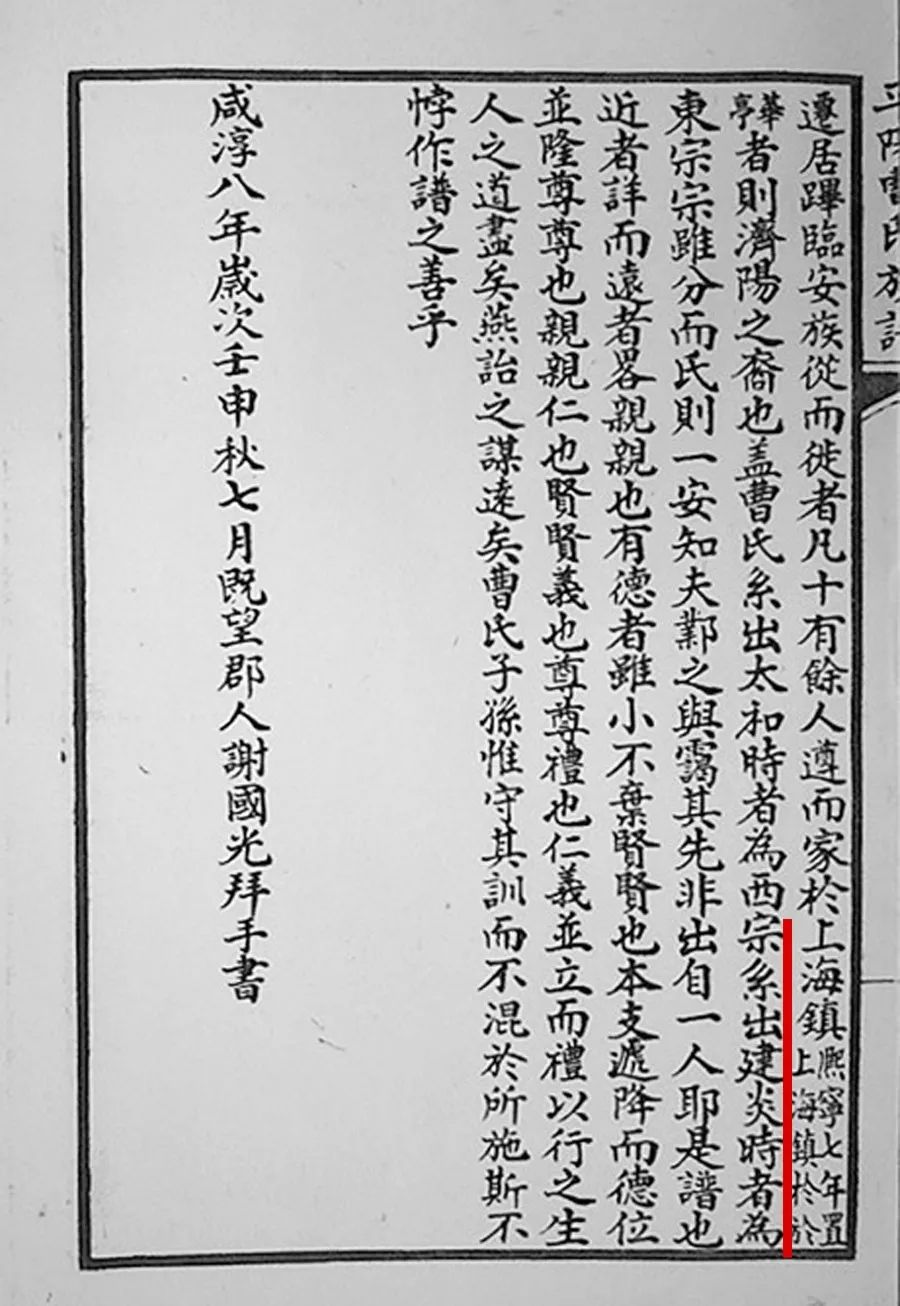 平陽曹氏族譜
遷居蹕臨安族從而徙者凡十有餘人遵而家於上海鎮熙寧七年置上海鎮於於
華亭者則濟陽之裔也盖曹氏系出太和時者為西宗系出建炎時者為
東宗宗雖分而氏則一安知夫之與靄其先非出自一人耶是譜也
近者詳而遠者畧親親也有德者雖小不棄賢賢也本支遞降而德位
並隆尊尊也親親仁也賢賢義也尊尊禮也仁義並立而禮以行之生
人之道盡矣燕詒之謀遠矣曹氏子孫惟守其訓而不混於所施斯不
悖作譜之善乎
咸淳八年歲次壬申秋七月既望郡人謝國光拜手書